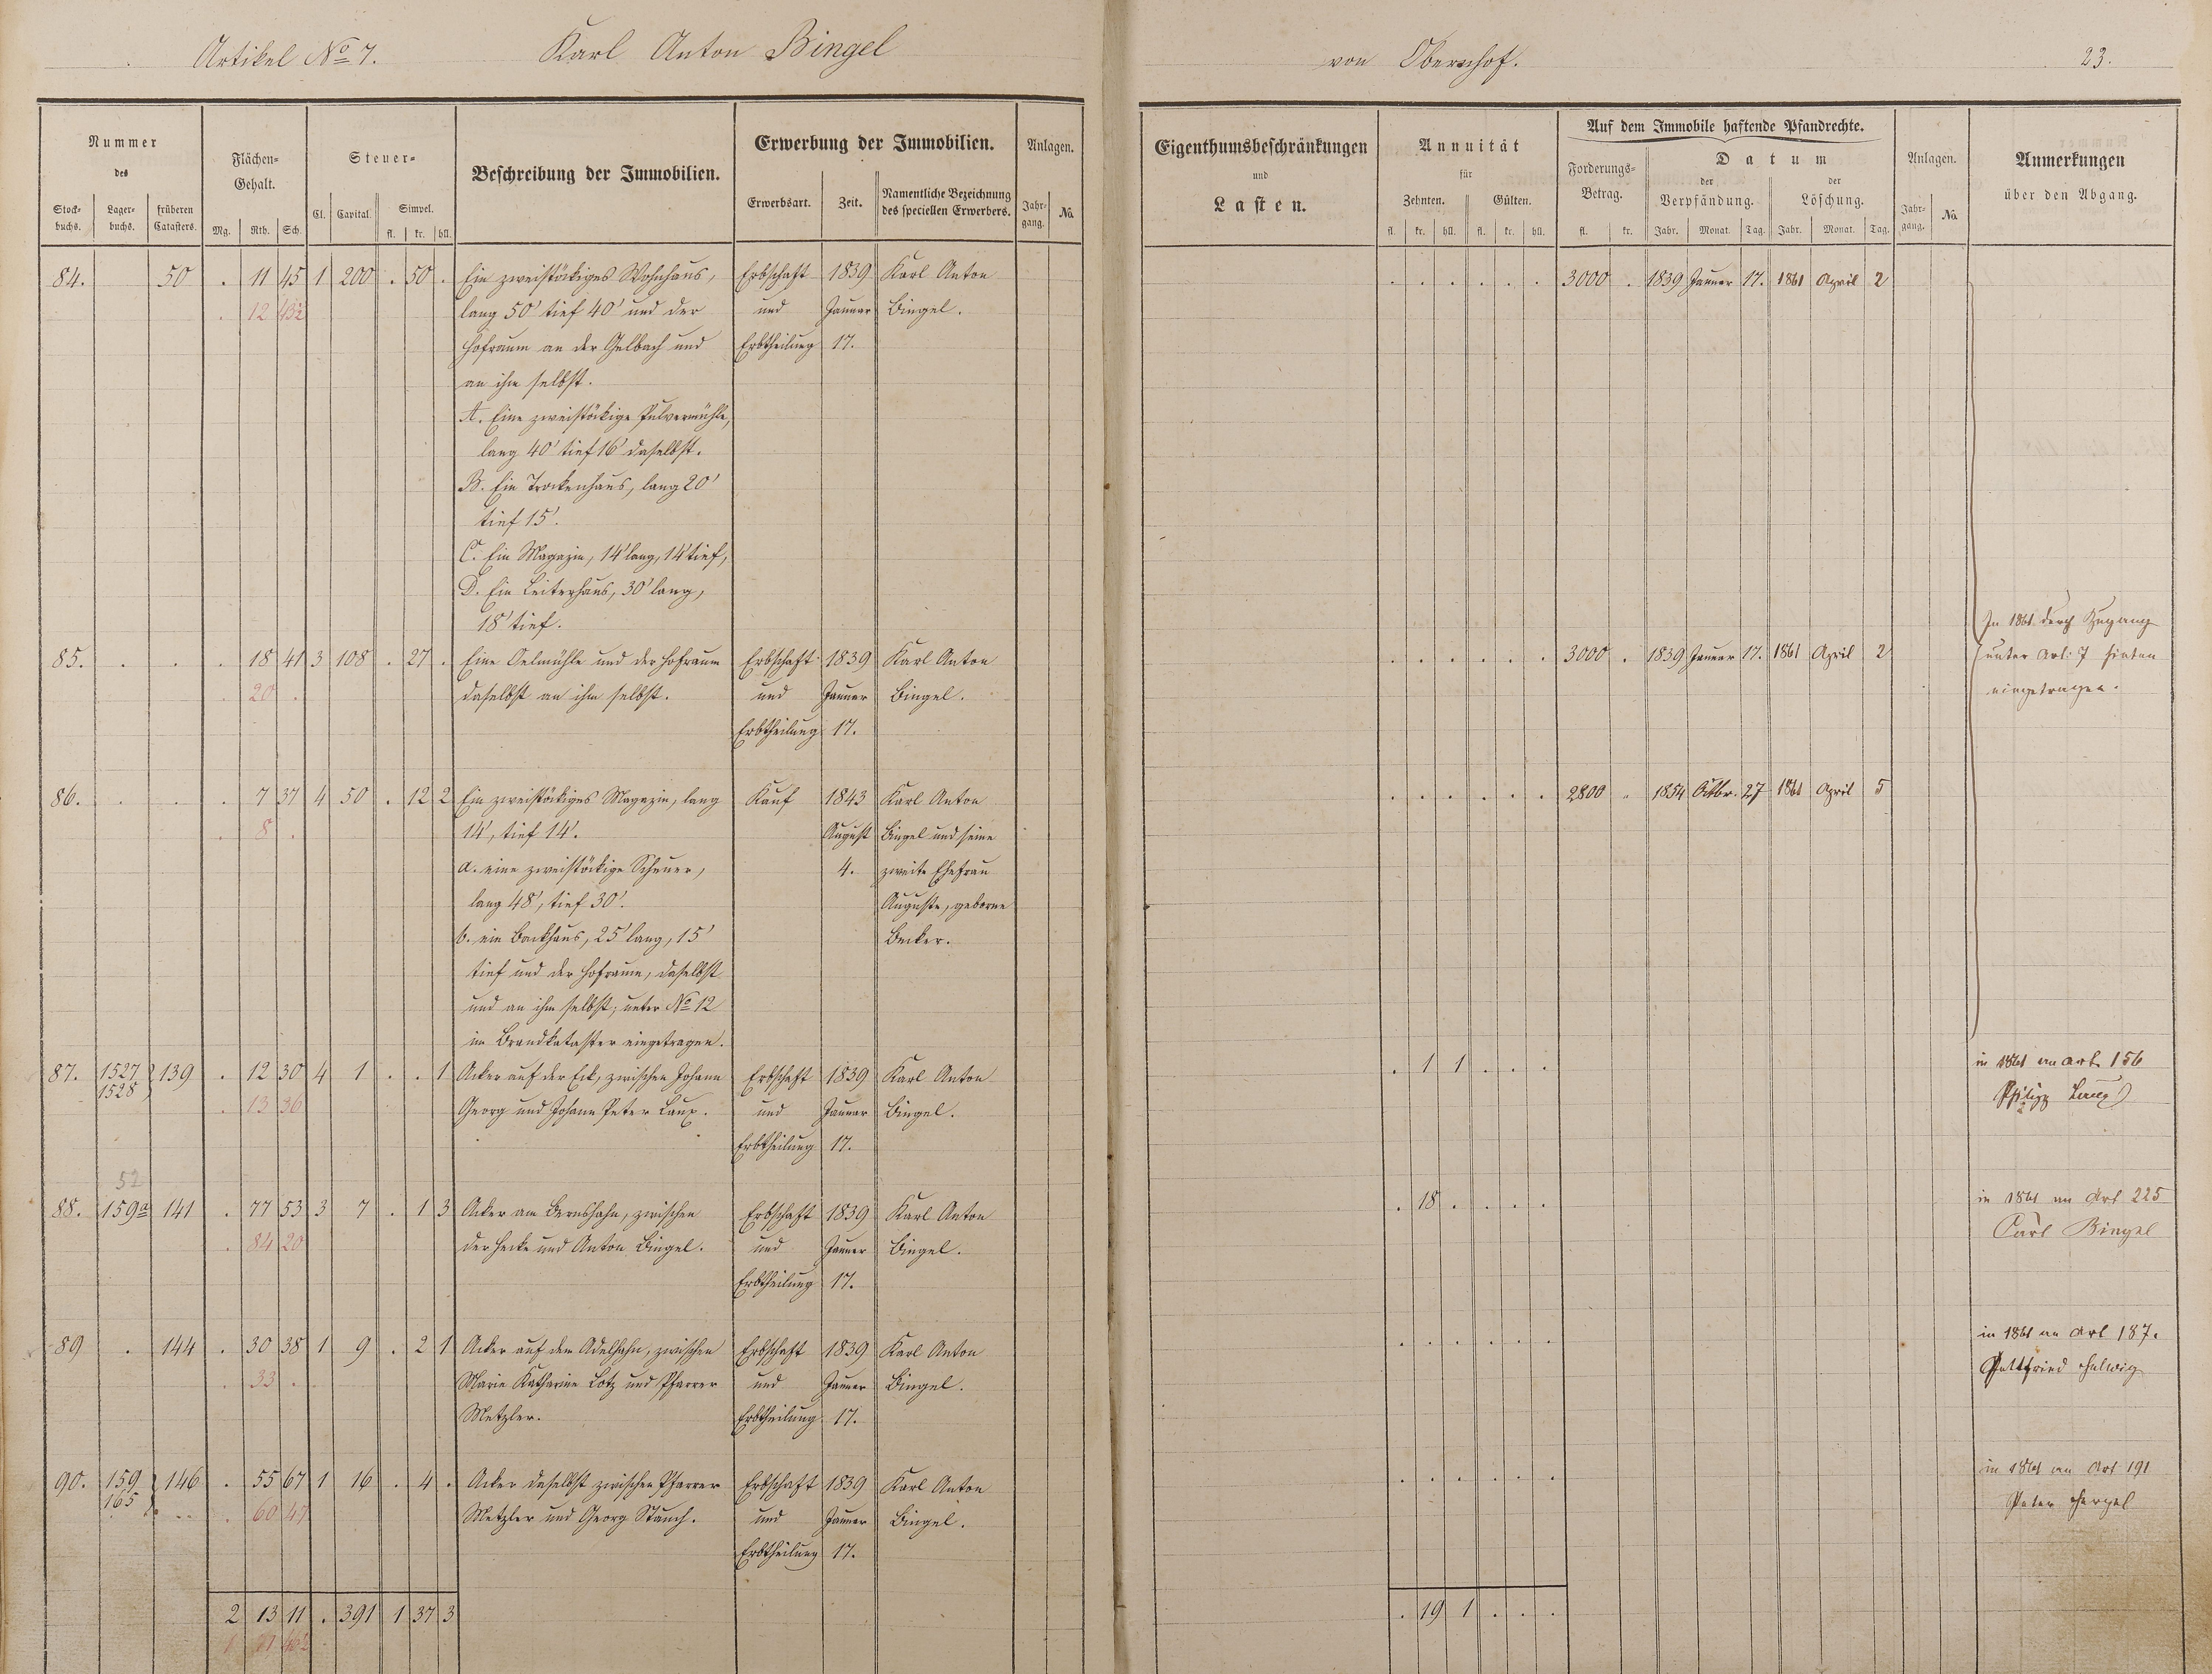 Artikel No 7. Karl Anton Bingel von Obernhof. 23.
Nummer
des
Stock-buchs. Lager-buchs. früheren Catasters.
Flächen-Gehalt.
Mg. Rth. Sch.
Steuer-
Cl. Capital. Simpel.
fl. kr. hll.
Beschreibung der Immobilien.
Erwerbung der Immobilien.
Erwerbsart. Zeit. Namentliche Bezeichnung des speciellen Erwerbers.
Anlagen.
Jahr-gang. No.
Eigenthumsbeschränkungen
und
Lasten.
Annuität
für
Zehnten. Gülten.
fl. kr. hll. fl. kr. hll.
Auf dem Immobile haftende Pfandrechte.
Forderungs-Betrag.
fl. kr.
Datum
der Verpfändung. der Löschung.
Jahr. Monat. Tag. Jahr. Monat. Tag.
Anlagen.
Jahr-gang. No.
Anmerkungen
über den Abgang.
84. 50 . 11 45 1 200 . 50 . Ein zweistöckiges Wohnhaus, Erbschaft 1839 Karl Anton . . . . . . 3000 . 1839 Januar 17. 1861 April 2
. 12 43½ lang 50' tief 40' und der und Januar Bingel.
Hofraum an der Gelbach und Erbtheilung 17.
an ihm selbst.
A. Eine zweistöckige Pulvermühle,
lang 40' tief 16' daselbst.
B. Ein Trockenhaus, lang 20'
tief 15'.
C. Ein Magazin, 14' lang, 14' tief,
D. Ein Leiterhaus, 30' lang,
18' tief.
In 1861 durch Zugang
85. . . . 18 41 3 108 . 27 . Eine Oelmühle und der Hofraum Erbschaft 1839 Karl Anton . . . . . . 3000 . 1839 Januar 17. 1861 April 2 unter Art: 7 hinten
. 20 . daselbst an ihm selbst. und Januar Bingel. eingetragen.
Erbtheilung 17.
86. . . . 7 37 4 50 . 12 2 Ein zweistöckiges Magazin, lang Kauf 1843 Karl Anton . . . . . . 2800 . 1854 Octbr. 27 1861 April 5
. 8 . 14', tief 14'. August Bingel und seine
a. eine zweistöckige Scheuer, 4. zweite Ehefrau
lang 48', tief 30'. Auguste, geborne
b. ein Backhaus, 25' lang, 15' Becker.
tief und der Hofraum, daselbst
und an ihm selbst; unter No 12
im Brandkataster eingetragen.
87. 1527 1528 139 . 12 30 4 1 . . 1 Acker auf der Eck, zwischen Johann Erbschaft 1839 Karl Anton . 1 1 . . . in 1861 an Art. 156
. 13 36 Georg und Johann Peter Laux. und Januar Bingel. Philipp Laux
Erbtheilung 17.
52
88. 159a 141 . 77 53 3 7 . 1 3 Acker am Bernshahn, zwischen Erbschaft 1839 Karl Anton . 18 . . . . in 1861 an Art 225
. 84 20 der Hecke und Anton Bingel. und Januar Bingel. Carl Bingel
Erbtheilung 17.
89 . 144 . 30 38 1 9 . 2 1 Acker auf dem Adelhahn, zwischen Erbschaft 1839 Karl Anton . . . . . . in 1861 an Art 187.
. 33 . Marie Katharine Lotz und Pfarrer und Januar Bingel. Gottfried Helwig
Metzler. Erbtheilung 17.
90. 159 165 146 . 55 67 1 16 . 4 . Acker daselbst zwischen Pfarrer Erbschaft 1839 Karl Anton . . . . . . in 1861 an Art 191
. 60 47 Metzler und Georg Stauch. und Januar Bingel. Peter
Erbtheilung 17.
2 13 11 . 391 1 37 3 . 19 1 . . .